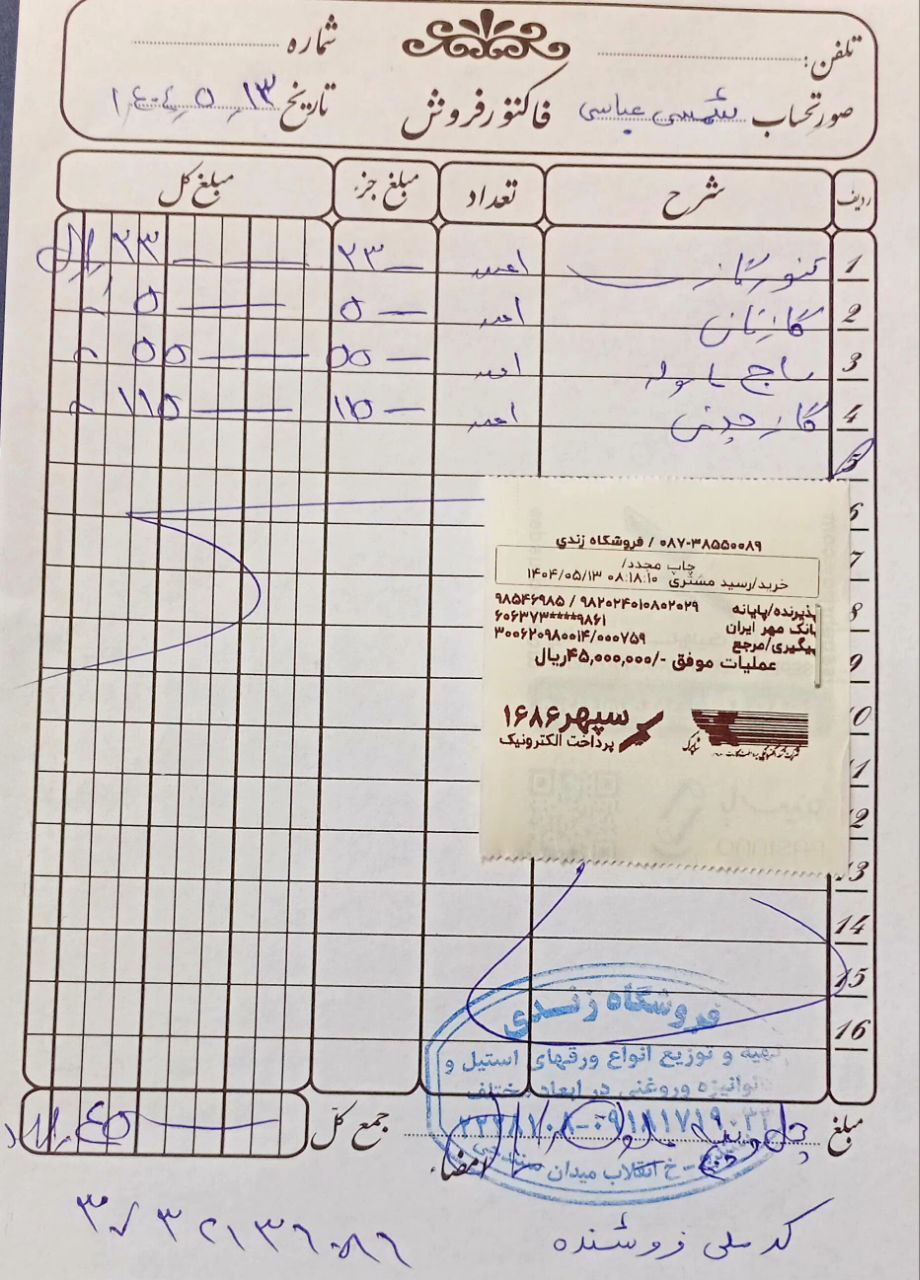 تلفن: شماره
صورتحساب شمسی عباسی فاکتور فروش تاریخ ۱۴۰۴/۵/۱۳
ردیف شرح تعداد مبلغ جز مبلغ کل
1 تنور گازی اعدد ۲۳ ۲۳ ریال
2 ۱عدد ۵ ۵
3 ساج ۱عدد ۵/۵ ۵/۵
4 گاز چدنی ۱عدد ۱۱/۵ ۱۱/۵
5
6
7
8
9
10
11
12
13
14
15
16
۰۸۷-۳۸۵۵۰۰۸۹ / فروشگاه زندی
چاپ مجدد/
خرید/رسید مشتری ۰۸:۱۸:۱۰ ۱۴۰۴/۰۵/۱۳
پذیرنده/پایانه ۹۸۲۰۲۴۰۱۰۸۰۲۰۲۹ / ۹۸۵۴۶۹۸۵
بانک مهر ایران ۶۰۶۳۷۳****۹۸۶۱
پیگیری/مرجع ۳۰۰۶۲۰۹۸۰۰۱۴/۰۰۰۷۵۹
عملیات موفق -/۴۵,۰۰۰,۰۰۰ریال
سپهر ۱۶۸۶
پرداخت الکترونیک
فروشگاه زندی
تهیه و توزیع انواع ورقهای استیل و
گالوانیزه وروغنی در ابعاد مختلف
خ انقلاب میدان
مبلغ چهل و پنج جمع کل ۴۵ ریال
امضاء
کد ملی فروشنده